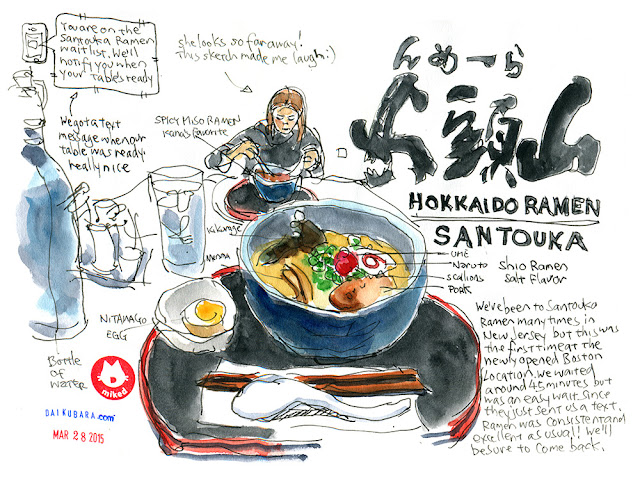 You are on the
Santouka Ramen
wait list. We'll
notify you when
your table's ready
We got a text
message when our
table was ready
really nice
she looks so far away!
This sketch made me laugh :)
SPICY MISO RAMEN
Kana's favorite
らーめん
山頭火
HOKKAIDO RAMEN
SANTOUKA
Kikurage
Menma
UME
Naruto
scallions
PORK
Shio Ramen
Salt Flavor
NITAMAGO
EGG
Bottle
of
water
miked
DAIKUBARA.com
MAR 28 2015
We've been to Santouka
Ramen many times in
New Jersey but this was
the first time at the
newly opened Boston
Location. We waited
around 45 minutes but
was an easy wait since
they just sent us a text.
Ramen was consistent and
excellent as usual! We'll
be sure to come back.